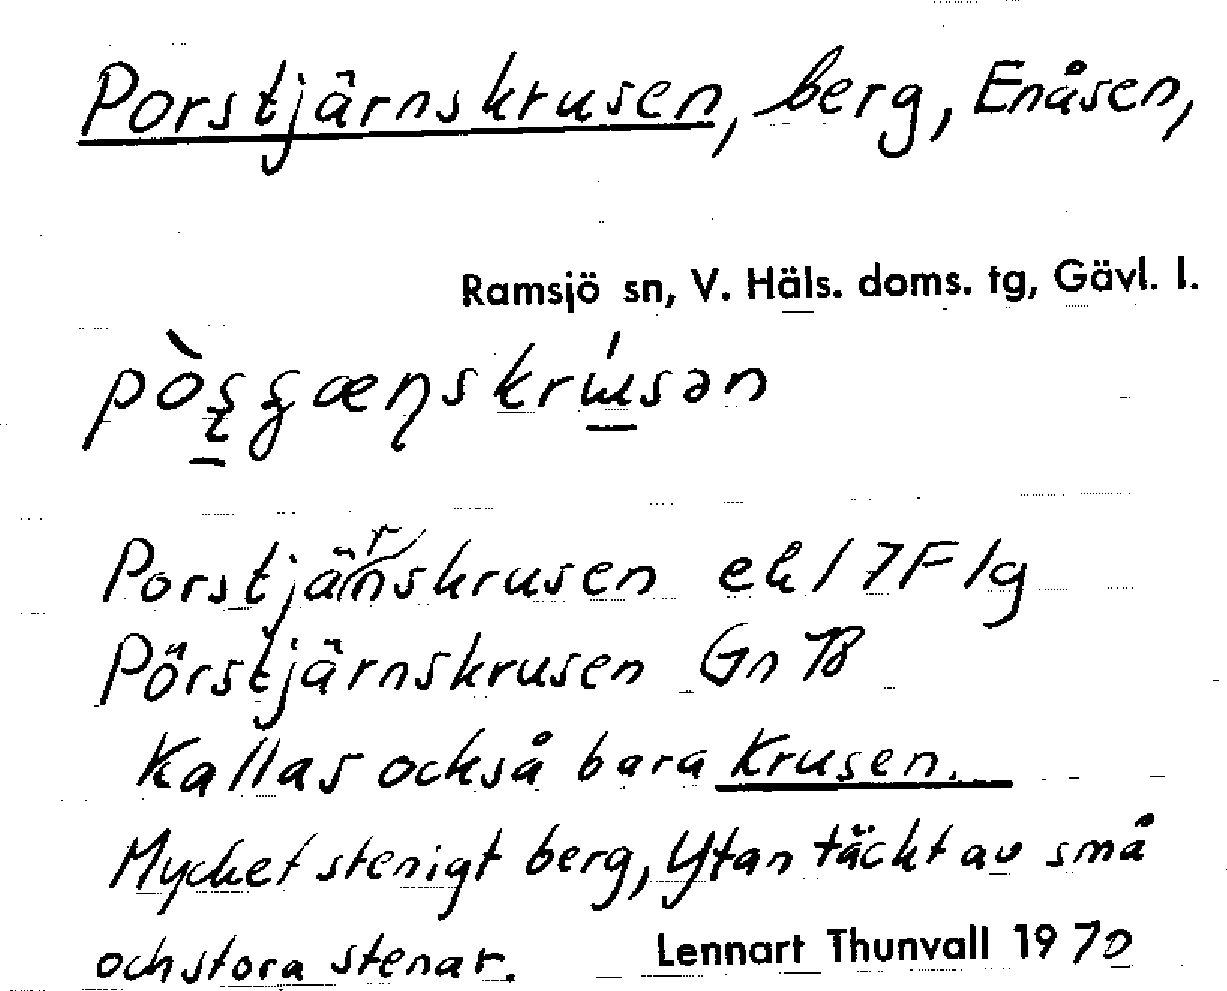 Porstjärnskrusen, berg, Enåsen,
Ramsjö sn, V. Häls. doms. tg, Gävl. l.
Porstjärnskrusen ek 17F 1g
Pörstjärnskrusen Gn
Kallas också bara Krusen.
Mycket stenigt berg, Ytan täckt av små
och stora stenar. Lennart Thunvall 1970